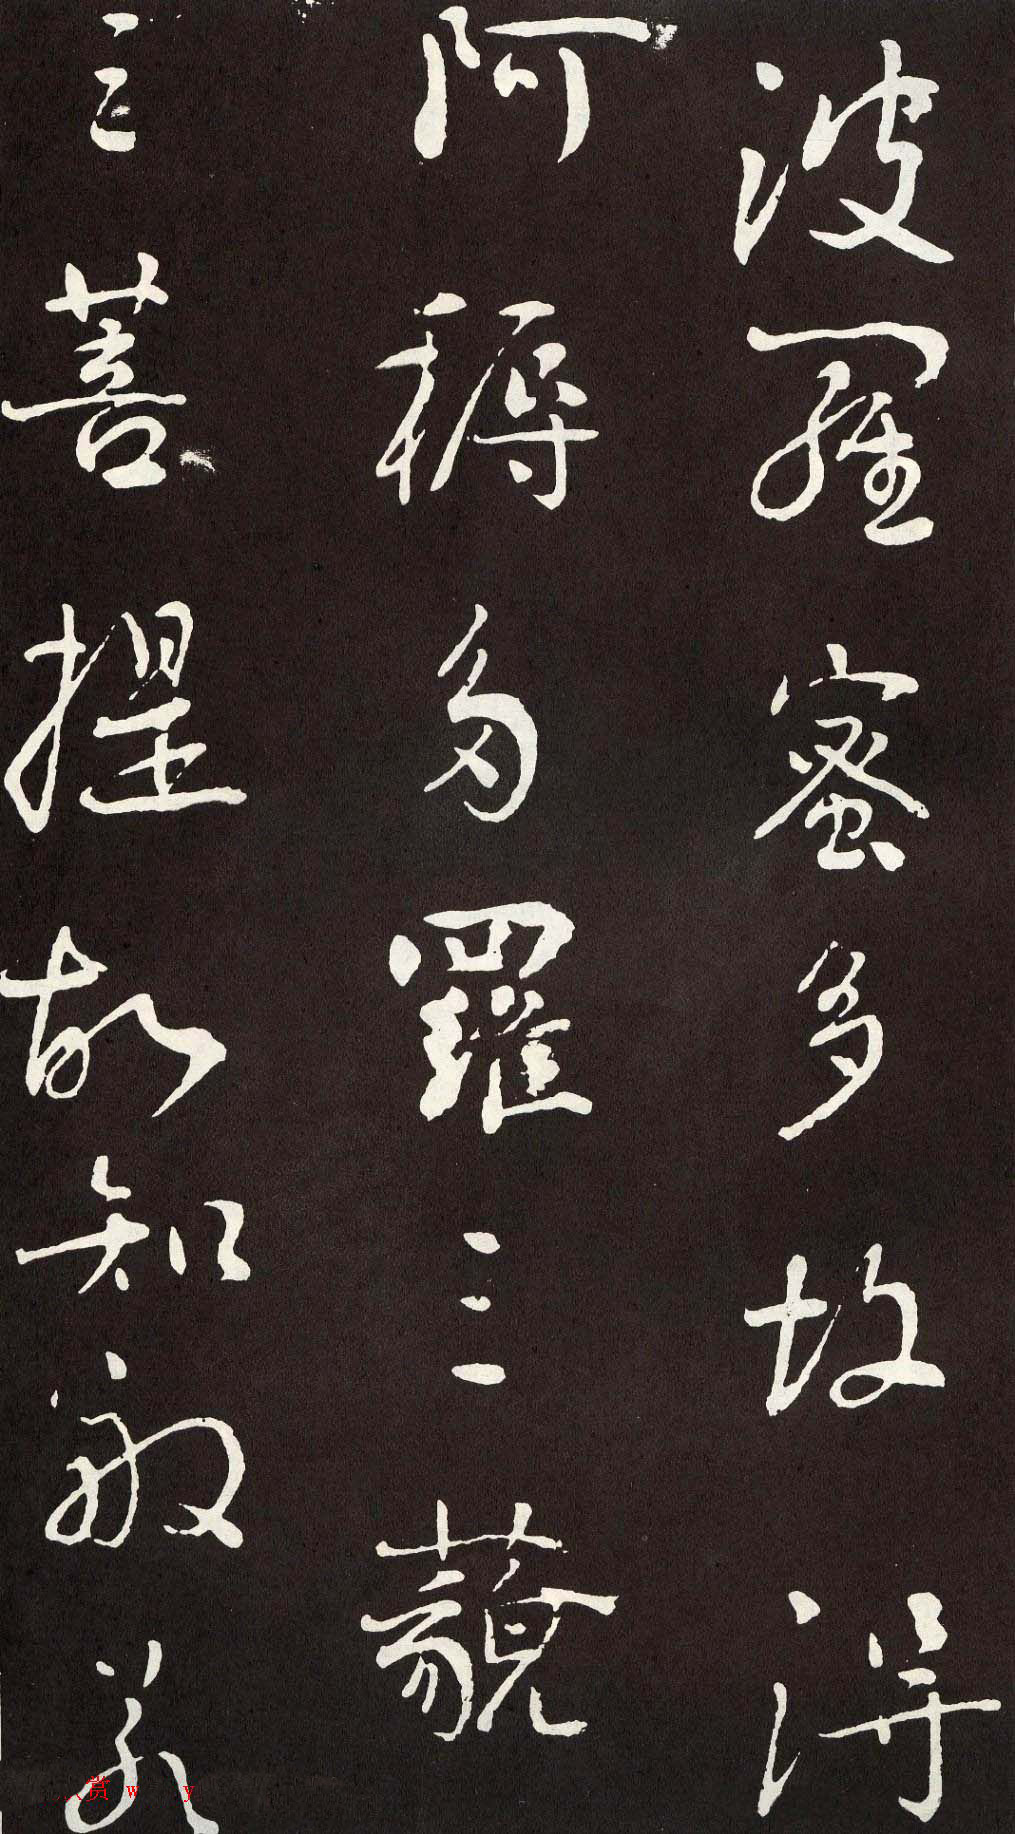 波羅蜜多故得
阿耨多羅三藐
三菩提故知般若
赏 w y